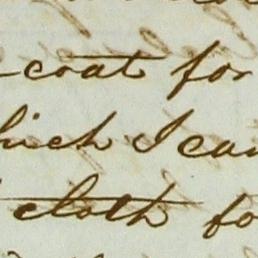 coat for
hich I can
cloth fo